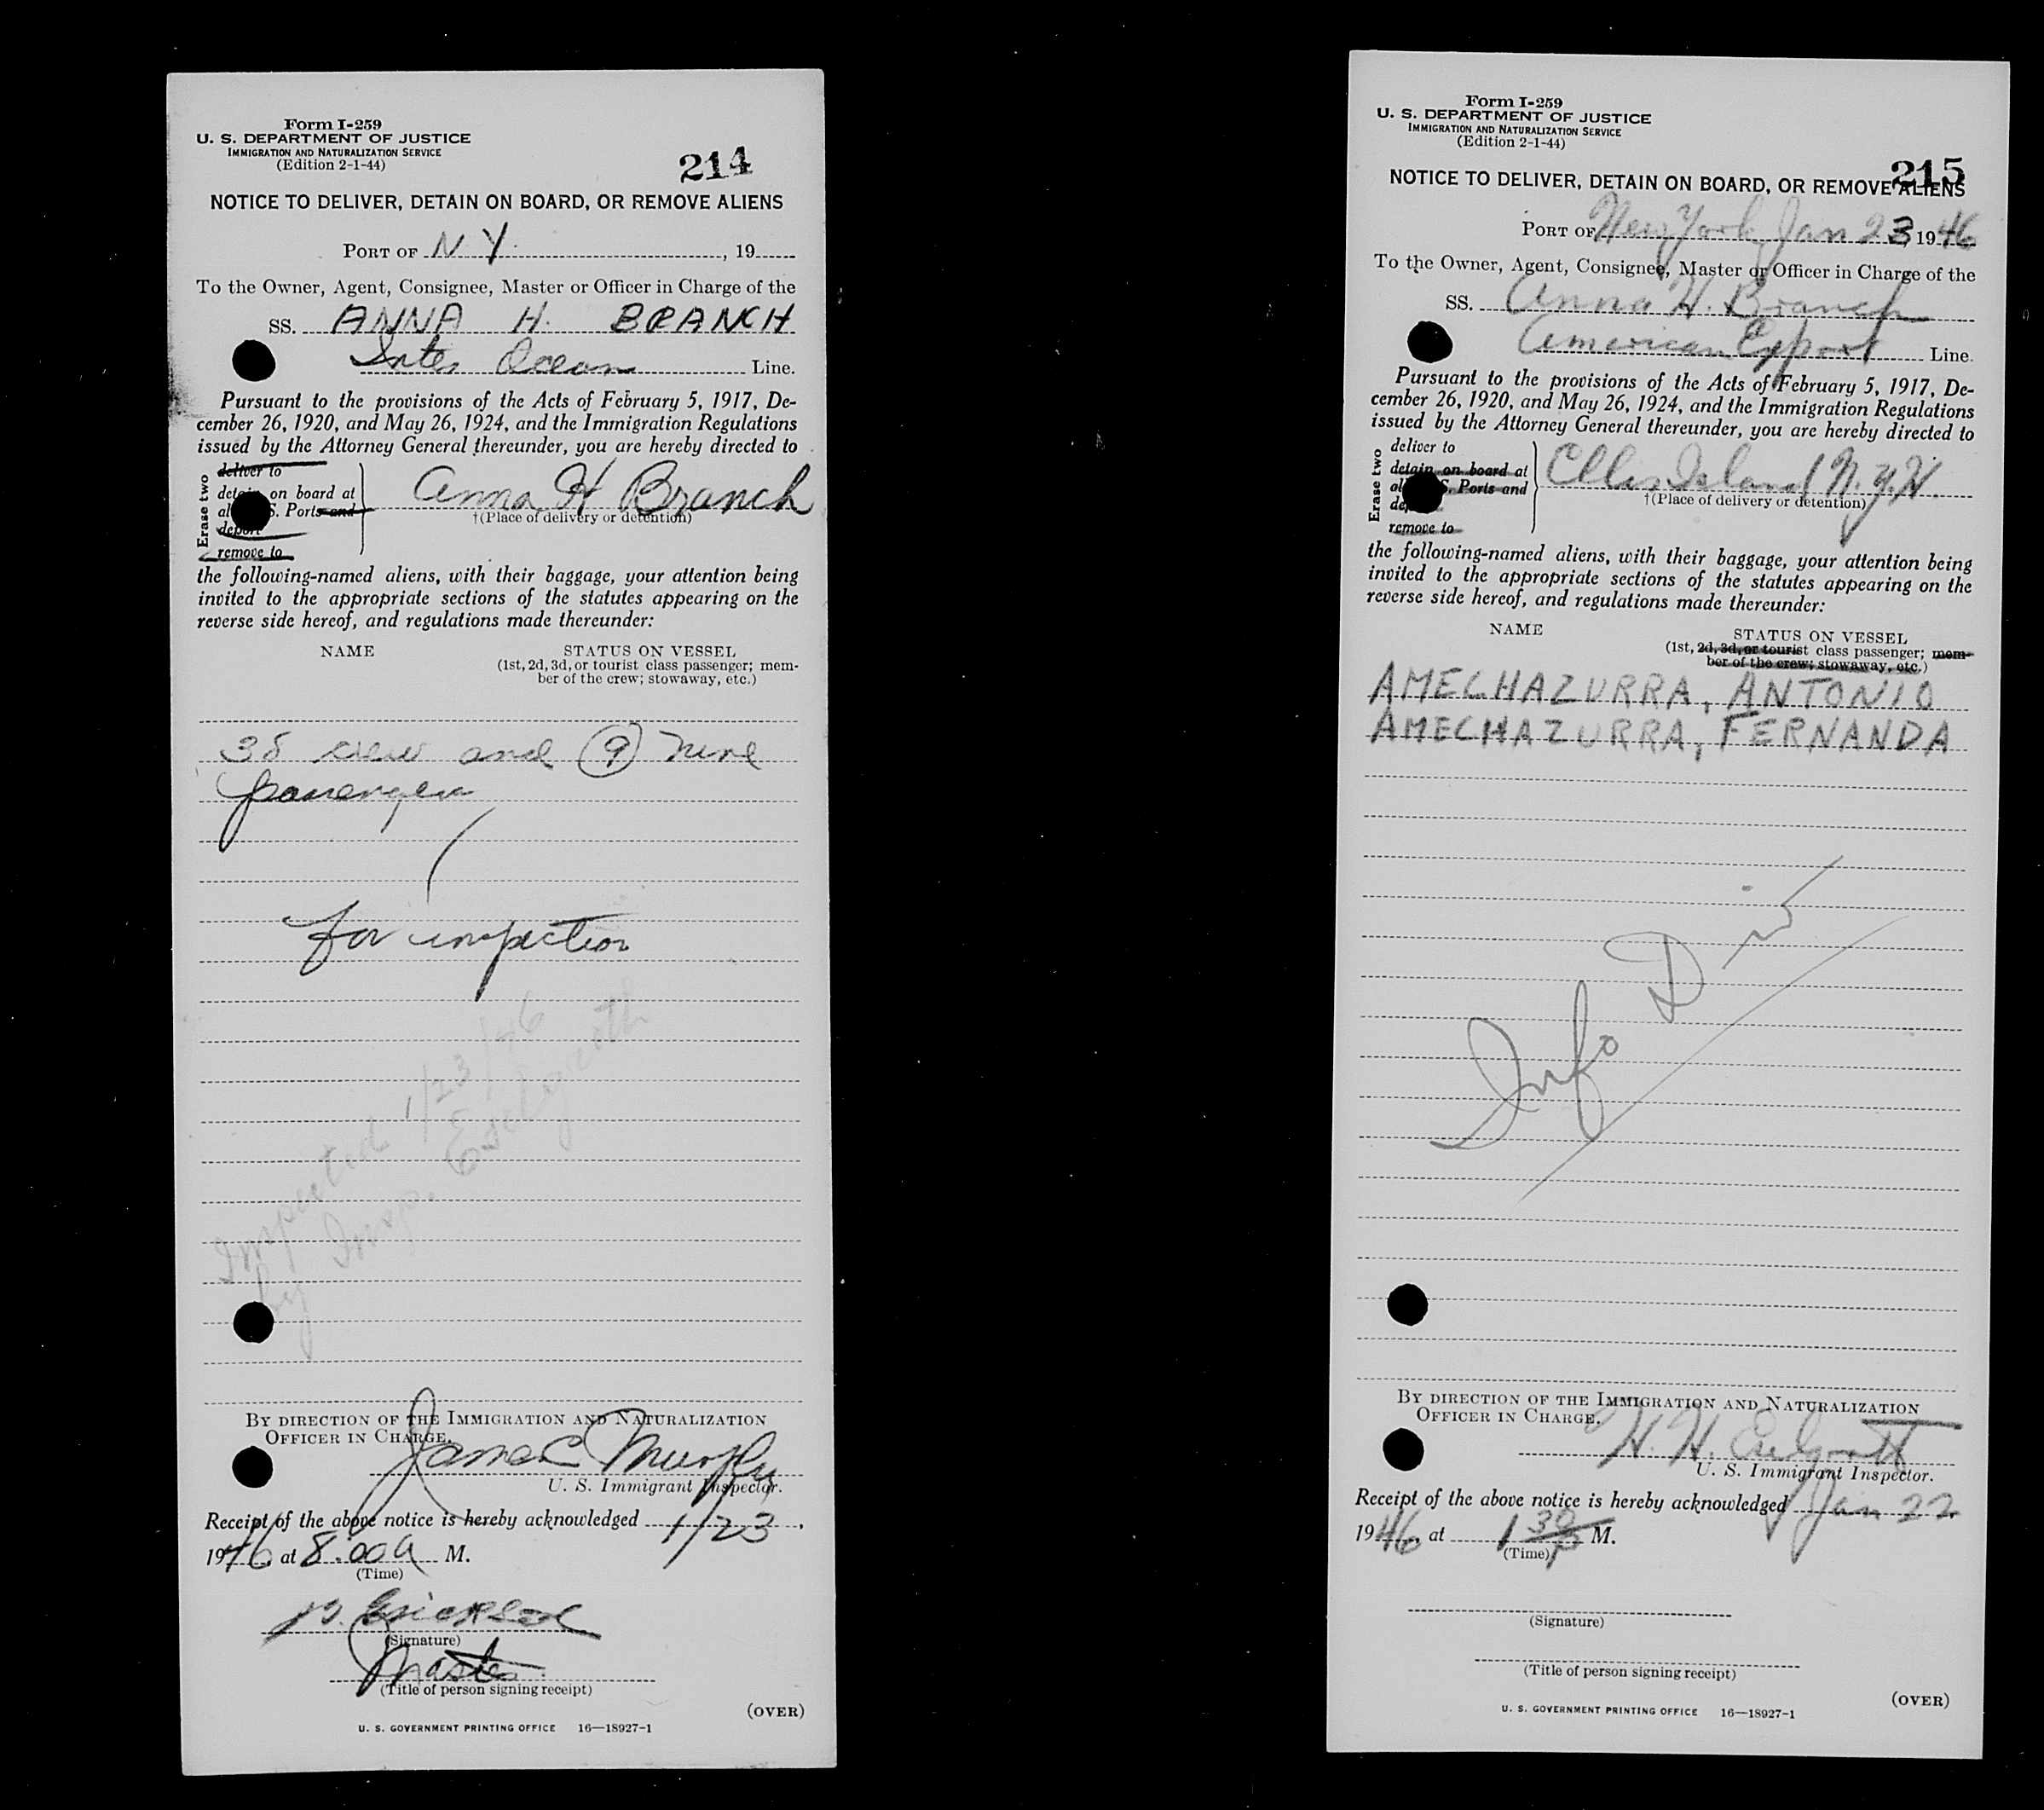 Form I-259
U. S. DEPARTMENT OF JUSTICE
IMMIGRATION AND NATURALIZATION SERVICE
(Edition 2-1-44)
214
NOTICE TO DELIVER, DETAIN ON BOARD, OR REMOVE ALIENS
PORT OF N Y , 19
To the Owner, Agent, Consignee, Master or Officer in Charge of the
SS. ANNA H. BRANCH
Inter Ocean Line.
Pursuant to the provisions of the Acts of February 5, 1917, De-
cember 26, 1920, and May 26, 1924, and the Immigration Regulations
issued by the Attorney General thereunder, you are hereby directed to
Erase two
deliver to
detain on board at
al S. Ports and
deport
remove to
Anna H Branch
†(Place of delivery or detention)
the following-named aliens, with their baggage, your attention being
invited to the appropriate sections of the statutes appearing on the
reverse side hereof, and regulations made thereunder:
NAME STATUS ON VESSEL
(1st, 2d, 3d, or tourist class passenger; mem-
ber of the crew; stowaway, etc.)
38 crew and (9) nine
passengers
for inspection
Inspected 1/23/46
by Insp.
BY DIRECTION OF THE IMMIGRATION AND NATURALIZATION
OFFICER IN CHARGE.
James Murphy
U. S. Immigrant Inspector.
Receipt of the above notice is hereby acknowledged 1/23,
1946, at 8.00 A M.
(Time)
Erickson
(Signature)
Master
(Title of person signing receipt)
(OVER)
U. S. GOVERNMENT PRINTING OFFICE 16—18927-1
Form I-259
U. S. DEPARTMENT OF JUSTICE
IMMIGRATION AND NATURALIZATION SERVICE
(Edition 2-1-44)
215
NOTICE TO DELIVER, DETAIN ON BOARD, OR REMOVE ALIENS
PORT OF New York Jan 23, 1946
To the Owner, Agent, Consignee, Master or Officer in Charge of the
SS. Anna H. Branch
American Export Line.
Pursuant to the provisions of the Acts of February 5, 1917, De-
cember 26, 1920, and May 26, 1924, and the Immigration Regulations
issued by the Attorney General thereunder, you are hereby directed to
Erase two
deliver to
detain on board at
al S. Ports and
de
remove to
Ellis Island N.Y.H.
†(Place of delivery or detention)
the following-named aliens, with their baggage, your attention being
invited to the appropriate sections of the statutes appearing on the
reverse side hereof, and regulations made thereunder:
NAME STATUS ON VESSEL
(1st, 2d, 3d, or tourist class passenger; mem-
ber of the crew; stowaway, etc.)
AMECHAZURRA, ANTONIO
AMECHAZURRA, FERNANDA
Info Div
BY DIRECTION OF THE IMMIGRATION AND NATURALIZATION
OFFICER IN CHARGE.
H. H.
U. S. Immigrant Inspector.
Receipt of the above notice is hereby acknowledged Jan 22
1946, at 1 30 P M.
(Time)
(Signature)
(Title of person signing receipt)
(OVER)
U. S. GOVERNMENT PRINTING OFFICE 16—18927-1